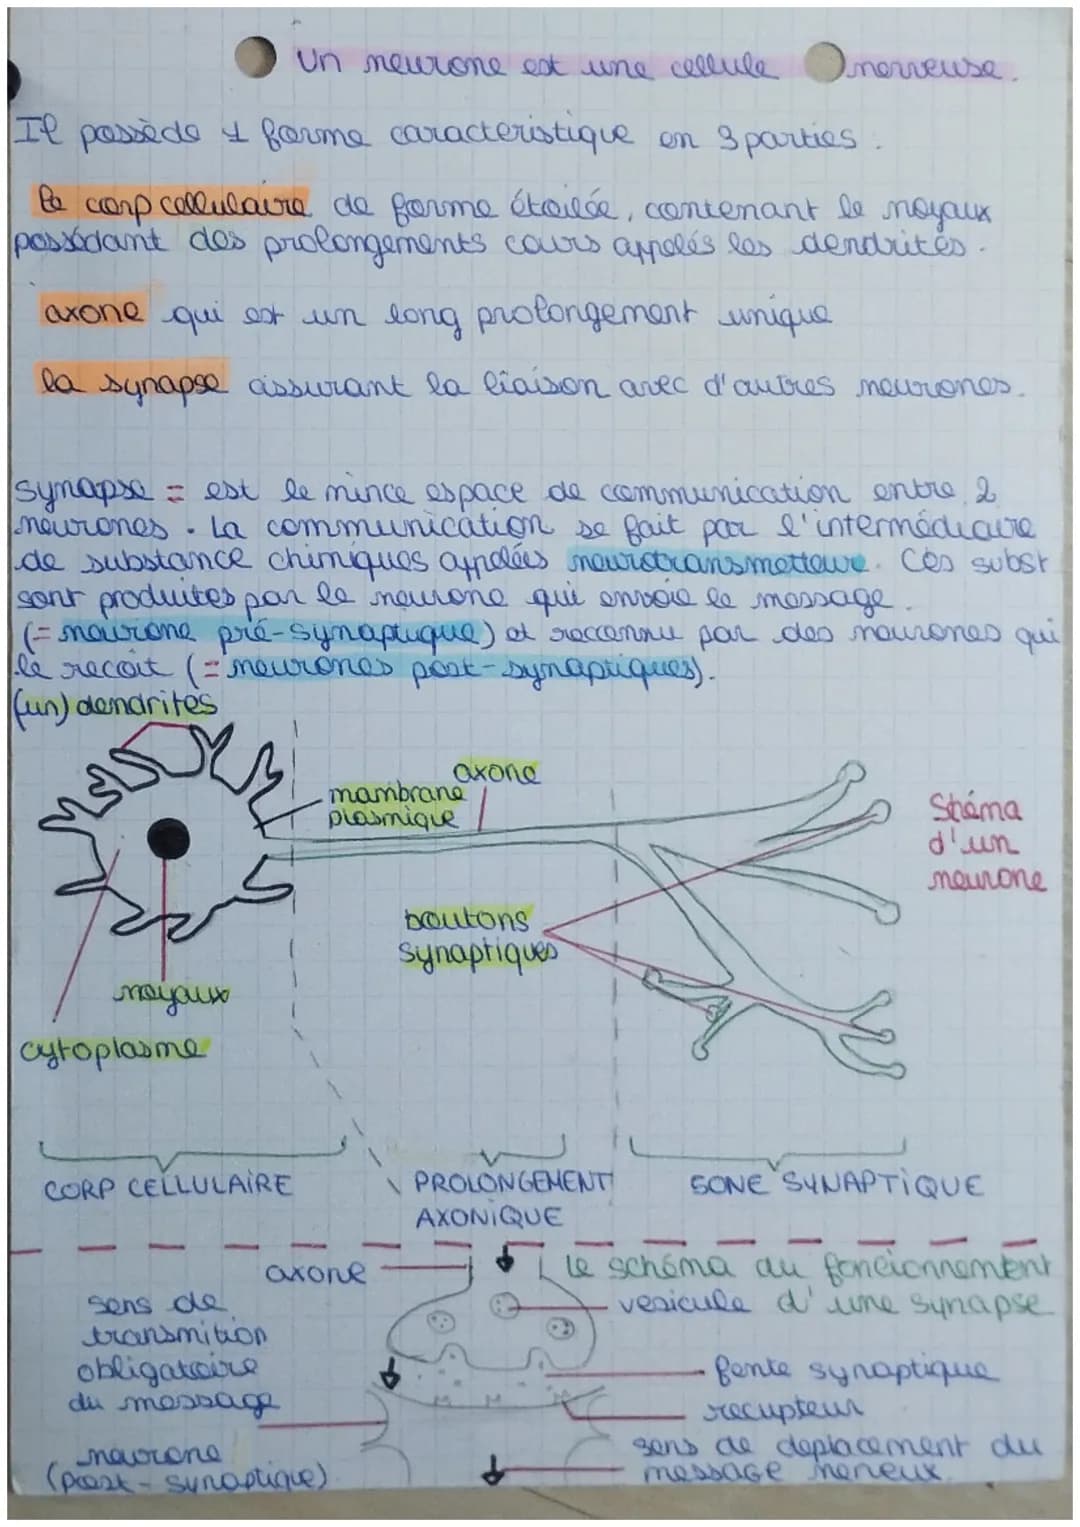 Un neurone est une cellule nerveuse.
Il possède 1 forme caracteristique en 3 parties :
le corp cellulaire de forme étoilée, contenant le noyaux
possédant des prolongements cours appelés les dendrites.
axone qui est un long prolongement unique
la synapse assurant la liaison avec d'autres neurones.
synapse = est le mince espace de communication entre 2
neurones. La communication se fait par l'intermédiaire
de substance chimiques appelées neurotransmetteur. Ces subst
sont produites par le neurone qui envoie le message.
(= neurone pré-synaptique) et reconnu par des neurones qui
le recoit (= neurones post-synaptiques).
(un) dendrites
axone
membrane
plasmique
Shéma
d'un
neurone
boutons
synaptiques
noyaux
cytoplasme
CORP CELLULAIRE
PROLONGEMENT
AXONIQUE
SONE SYNAPTIQUE
le schéma du foncionnement
d'une synapse
axone
vesicule
sens de
transmition
obligatoire
du message
fente synaptique
recupteur
neurone
(post-synaptique)
sens de deplacement du
message nerveux